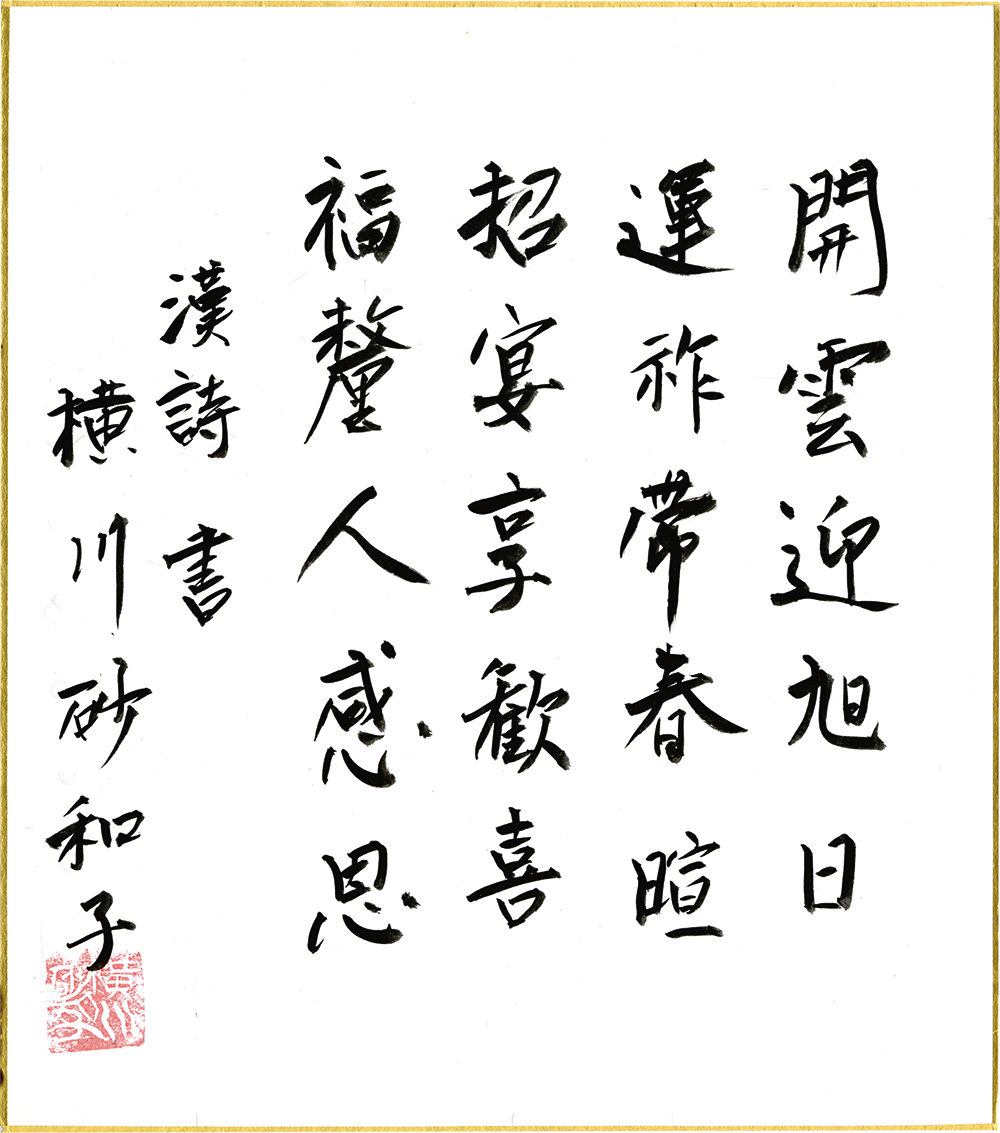 開雲迎旭日
運祚帯春暄
招宴享歓喜
福釐人感恩
漢詩 書
横川砂和子